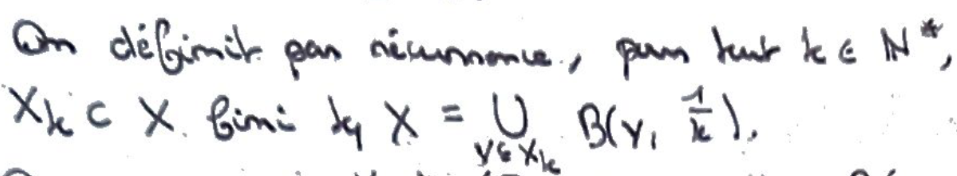 On définit par récurrence, pour tout k ∈ ℕ*,
X_k ⊂ X fini tq X = ⋃_{y ∈ X_k} B(y, 1/k).